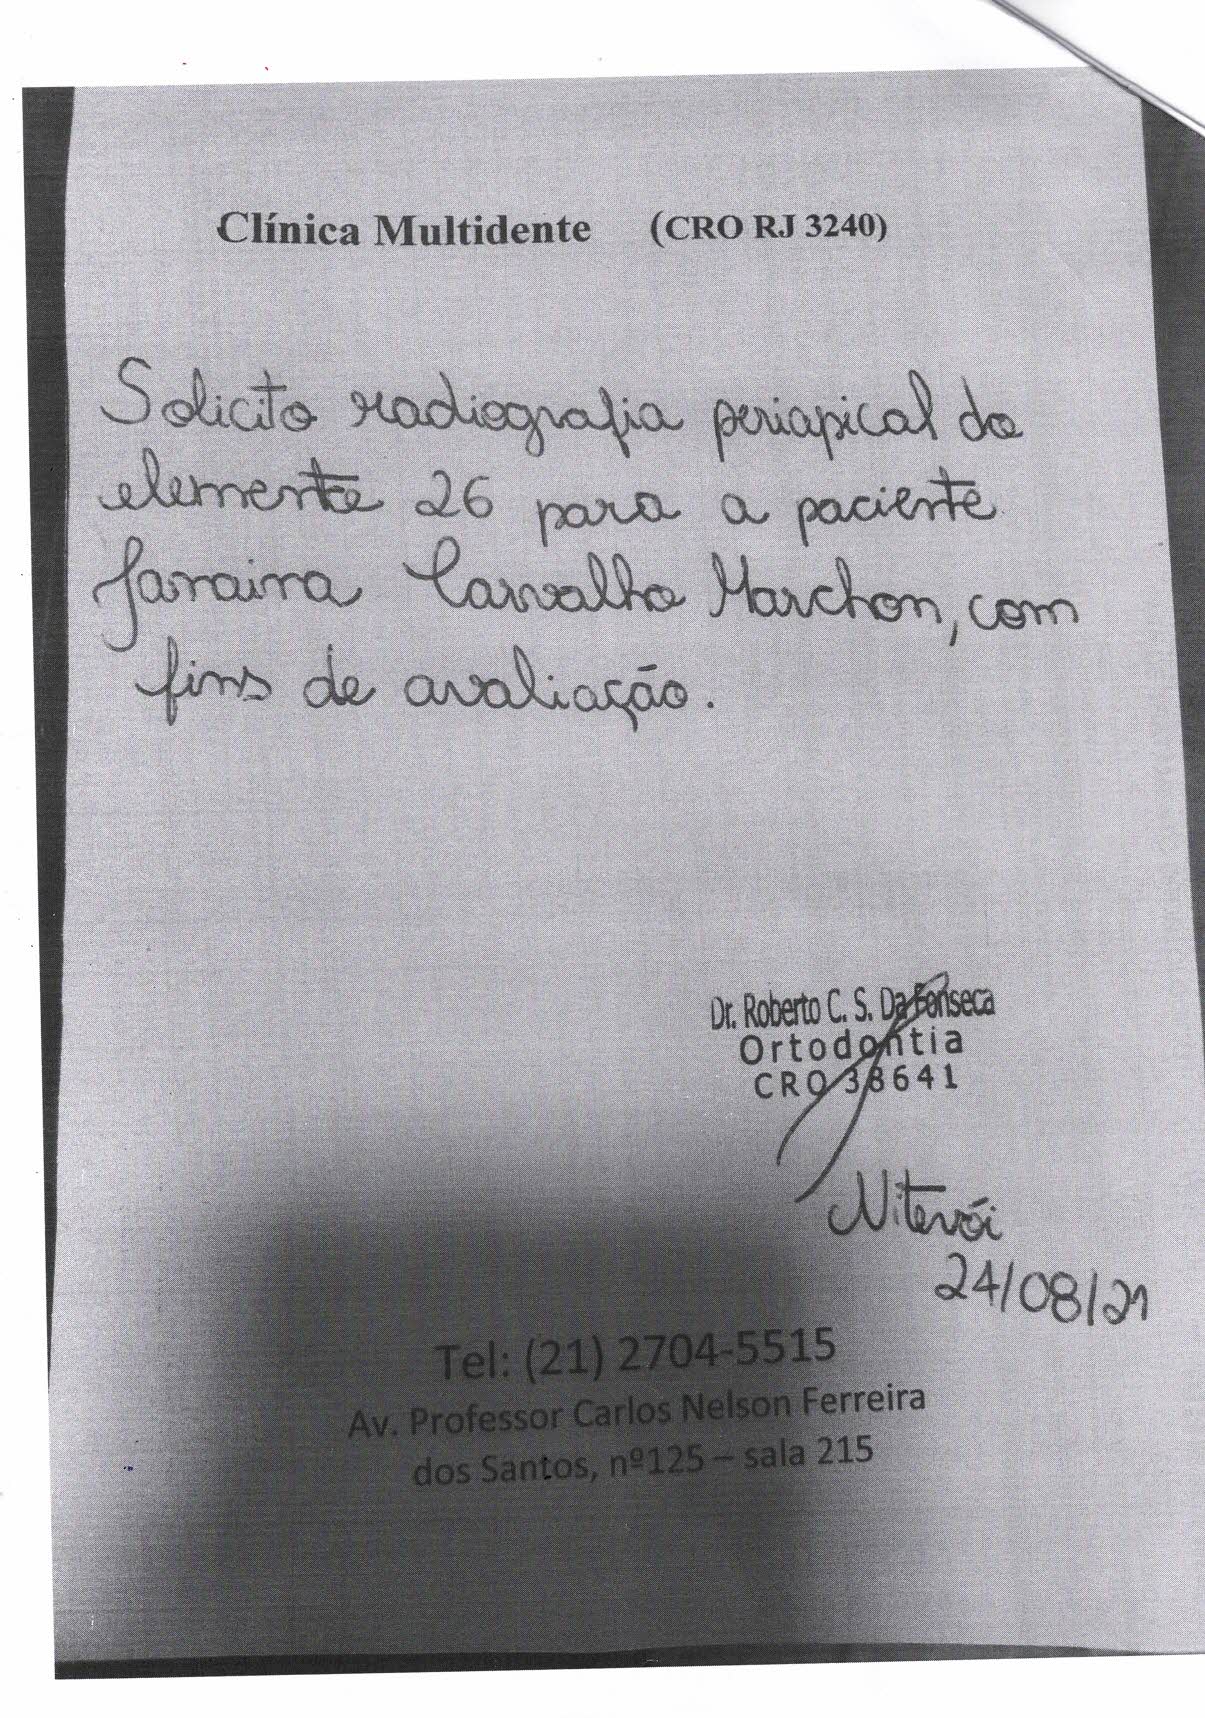 Clínica Multidente (CRO RJ 3240)
Solicito radiografia periapical do
elemento 26 para a paciente
Janaina Carvalho Marchon, com
fins de avaliação.
Dr. Roberto C. S. Da Fonseca
Ortodontia
CRO 38641
Niterói
24/08/21
Tel: (21) 2704-5515
Av. Professor Carlos Nelson Ferreira
dos Santos, nº125 – sala 215